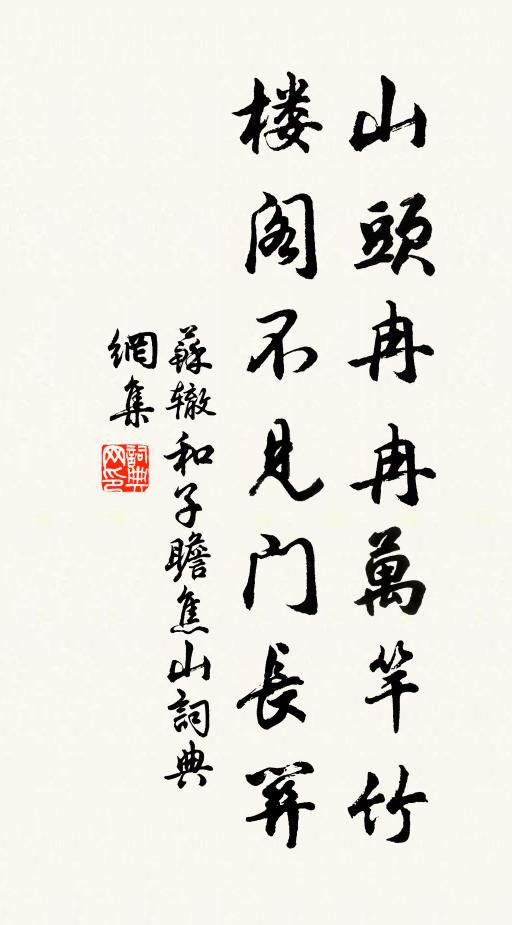 山頭冉冉萬竿竹
楼阁不見门長関
蘇辙和子瞻焦山詞典
網集
詞典网印